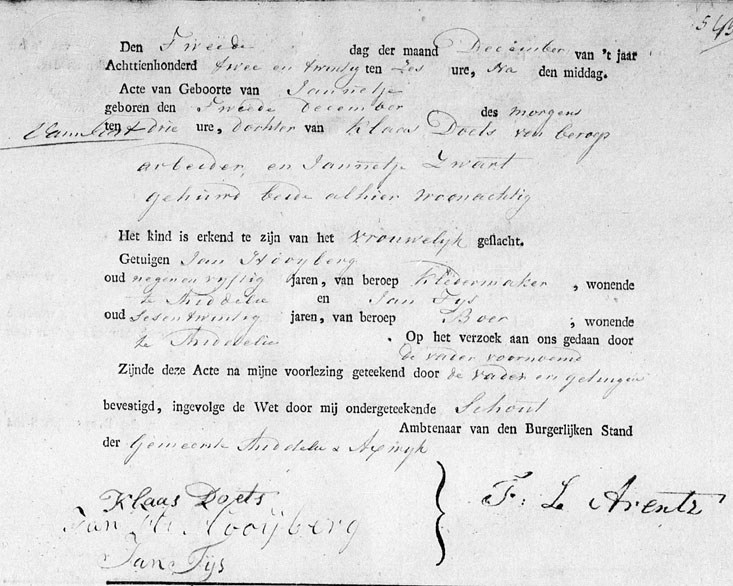 545
Den Tweede dag der maand December van 't jaar
Achttienhonderd twee en twintig ten Zes ure, Na den middag.
Acte van Geboorte van Jannetje
geboren den Tweede December des morgens
ten drie ure, dochter van Klaas Doets van beroep
arbeider, en Jannetje Zwart
gehuwd beide alhier woonachtig
Het kind is erkend te zijn van het vrouwelijk geslacht.
Getuigen Jan Hooyberg
oud negen en vyftig jaren, van beroep Kledermaker, wonende
te Middelie en Jan Tys
oud sesentwintig jaren, van beroep Boer, wonende
te Middelie. Op het verzoek aan ons gedaan door
de vader voornoemd
Zijnde deze Acte na mijne voorlezing geteekend door de vader en getuigen
bevestigd, ingevolge de Wet door mij ondergeteekende Schout
Ambtenaar van den Burgerlijken Stand
der Gemeente Middelie & Axwyk
Klaas Doets
Jan Hooijberg
Jan Tijs
F: L Arentz